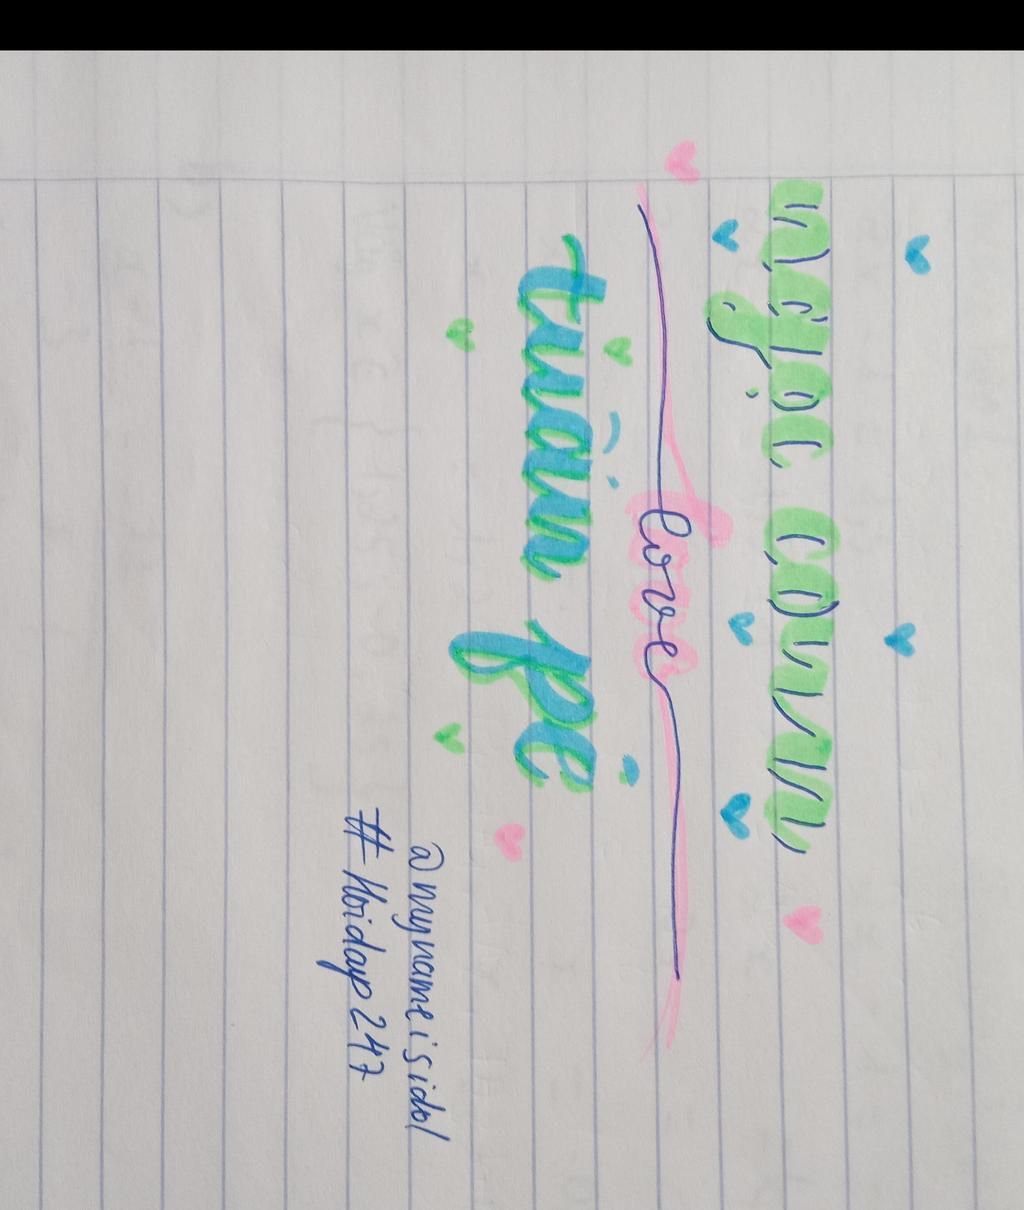 ngọc cown
love
tuấn pé
@mynameisidol
#Hoidap247